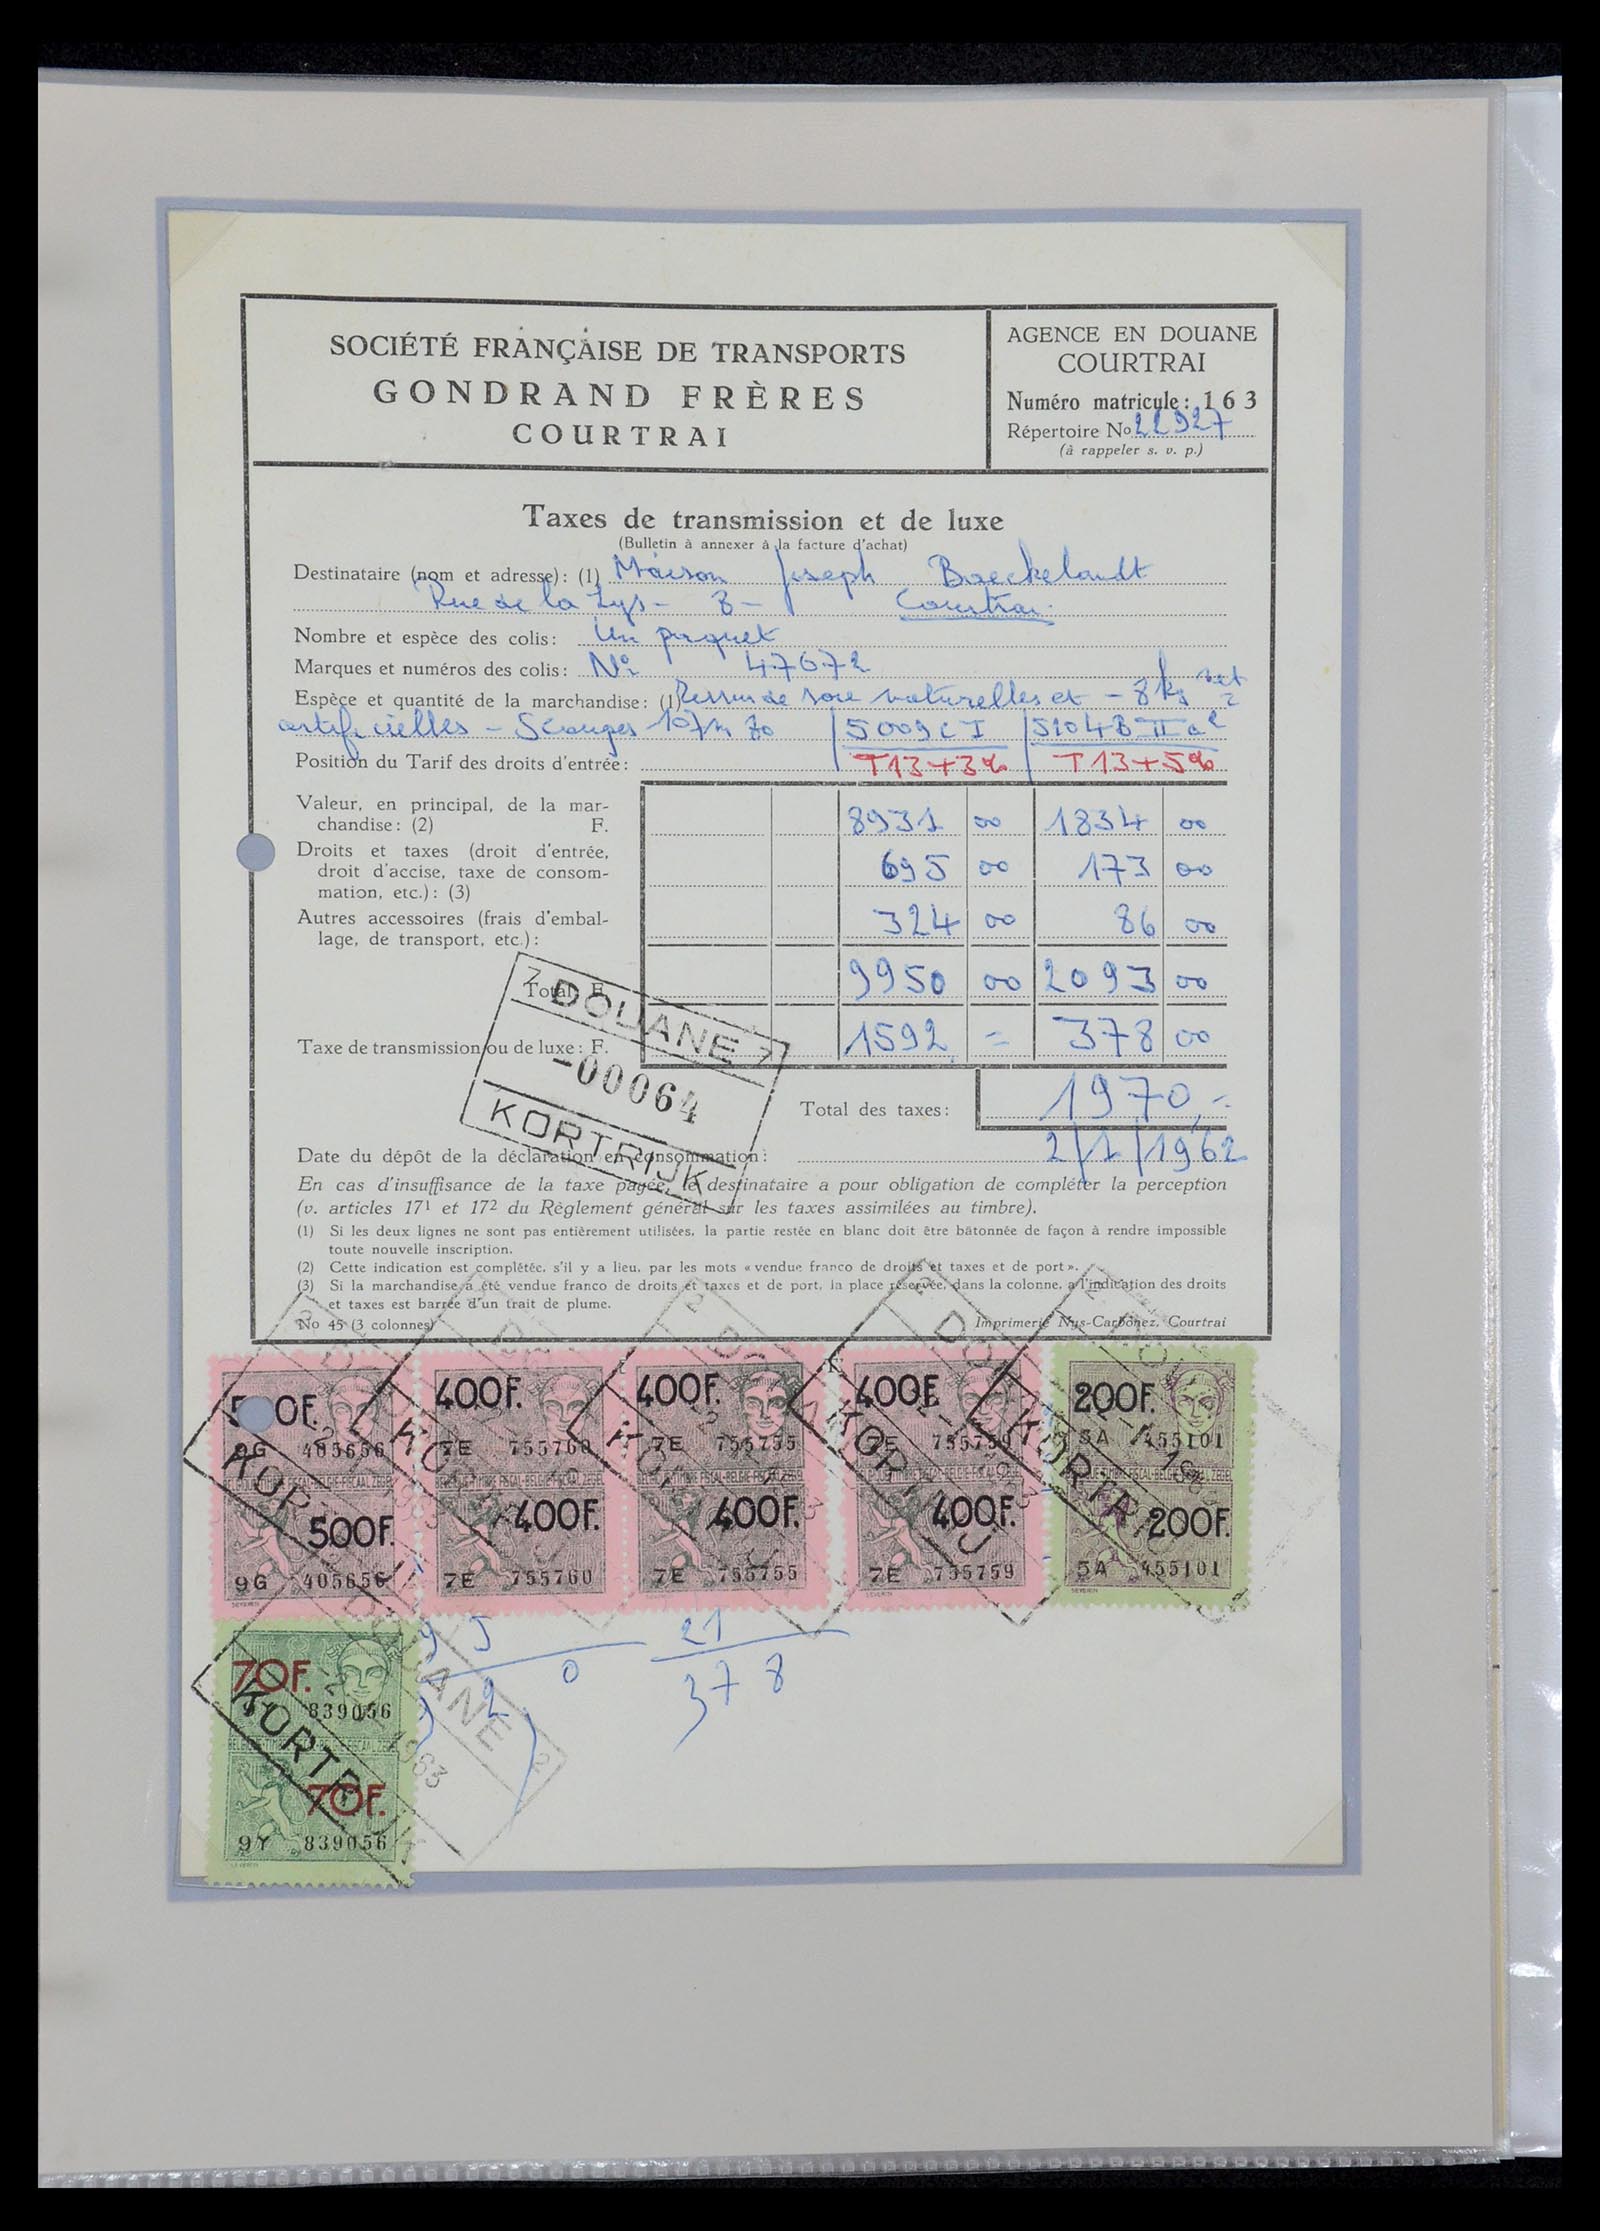 SOCIÉTÉ FRANÇAISE DE TRANSPORTS
GONDRAND FRÈRES
COURTRAI
AGENCE EN DOUANE
COURTRAI
Numéro matricule: 163
Répertoire No 22927
(à rappeler s. v. p.)
Taxes de transmission et de luxe
(Bulletin à annexer à la facture d'achat)
Destinataire (nom et adresse): (1) Maison Joseph Baeckelandt
Rue de la Lys - 8 - Courtrai
Nombre et espèce des colis: Un paquet
Marques et numéros des colis: No 47672
Espèce et quantité de la marchandise: (1) de soie naturelles et - 8 kg net
artificielles - 5009 C I 5104 B II a
Position du Tarif des droits d'entrée: T13+3% T13+5%
Valeur, en principal, de la mar-
chandise: (2) F. 8931 00 1834 00
Droits et taxes (droit d'entrée,
droit d'accise, taxe de consom-
mation, etc.): (3) 695 00 173 00
Autres accessoires (frais d'embal-
lage, de transport, etc.): 324 00 86 00
Total F. 9950 00 2093 00
Taxe de transmission ou de luxe: F. 1592 = 378 00
7 DOUANE 7
-00064
KORTRIJK
Total des taxes: 1970,-
Date du dépôt de la déclaration en consommation: 2/1/1962
En cas d'insuffisance de la taxe payée, le destinataire a pour obligation de compléter la perception
(v. articles 17¹ et 17² du Règlement général sur les taxes assimilées au timbre).
(1) Si les deux lignes ne sont pas entièrement utilisées, la partie restée en blanc doit être bâtonnée de façon à rendre impossible
toute nouvelle inscription.
(2) Cette indication est complétée, s'il y a lieu, par les mots « vendue franco de droits et taxes et de port ».
(3) Si la marchandise a été vendue franco de droits et taxes et de port, la place réservée, dans la colonne, a l'indication des droits
et taxes est barrée d'un trait de plume.
No 45 (3 colonnes) Imprimerie Nys-Carbonez, Courtrai
500F. 400F. 400F. 400F. 200F.
9G 405656 7E 755760 7E 755755 7E 755759 5A 455101
BELGIQUE-TIMBRE FISCAL-BELGIE-FISCAAL ZEGEL
500F. 400F. 400F. 400F. 200F.
9G 405656 7E 755760 7E 755755 7E 755759 5A 455101
KORTRIJK
21
378
70F.
9Y 839056
BELGIQUE-TIMBRE FISCAL-BELGIE-FISCAAL ZEGEL
70F.
9Y 839056
2 DOUANE 2
-2 -1 1963
KORTRIJK